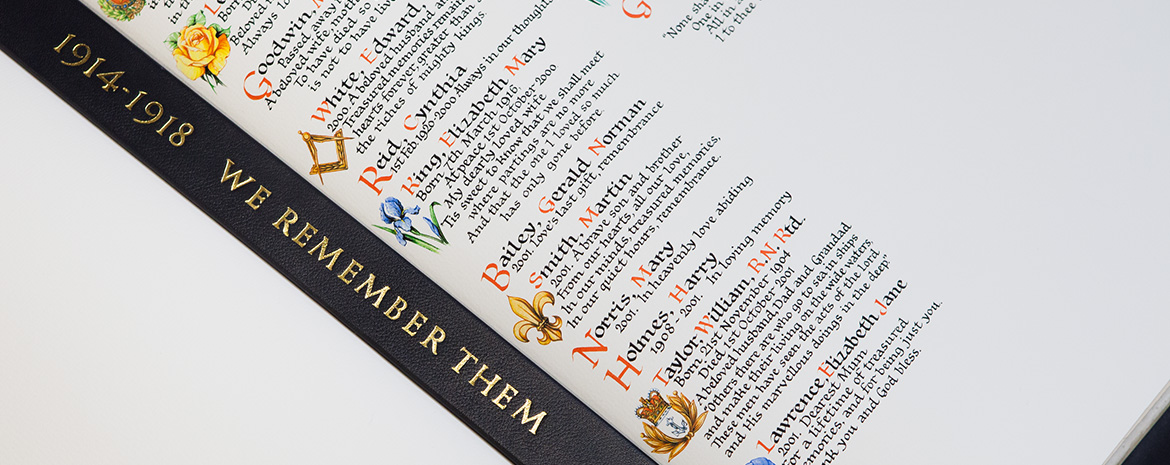 1914-1918 WE REMEMBER THEM
in th
Born
Beloved
Always lo
Goodwin, M
Passed away
A beloved wife, mother
To have died so
is not to have
White, Edward,
2000. A beloved husband, an
Treasured memories remain
hearts forever, greater than
the riches of mighty kings
Reid, Cynthia
1st Feb. 1920-2000 Always in our thoughts
King, Elizabeth Mary
Born 7th March 1916,
At peace 1st October 2000
My dearly loved wife
'Tis sweet to know that we shall meet
where partings are no more
And that the one I loved so much
has only gone before.
Bailey, Gerald Norman
2001. Love's last gift, remembrance
Smith, Martin
2001. A brave son and brother
From our hearts, all our love,
In our minds, treasured memories,
In our quiet hours, remembrance.
Norris, Mary
2001. "In heavenly love abiding
Holmes, Harry
1908 - 2001. In loving memory
Taylor, William, R.N. Rtd.
Born, 21st November 1904
Died, 1st October 2001
A beloved husband, Dad and Grandad
"Others there are who go to sea in ships
and make their living on the wide waters,
These men have seen the acts of the Lord
and His marvellous doings in the deep."
Lawrence, Elizabeth Jane
2001. Dearest Mum
For a lifetime of treasured
memories, and for being just you
thank you and God bless.
"None sha
One in
All in
1 to thee